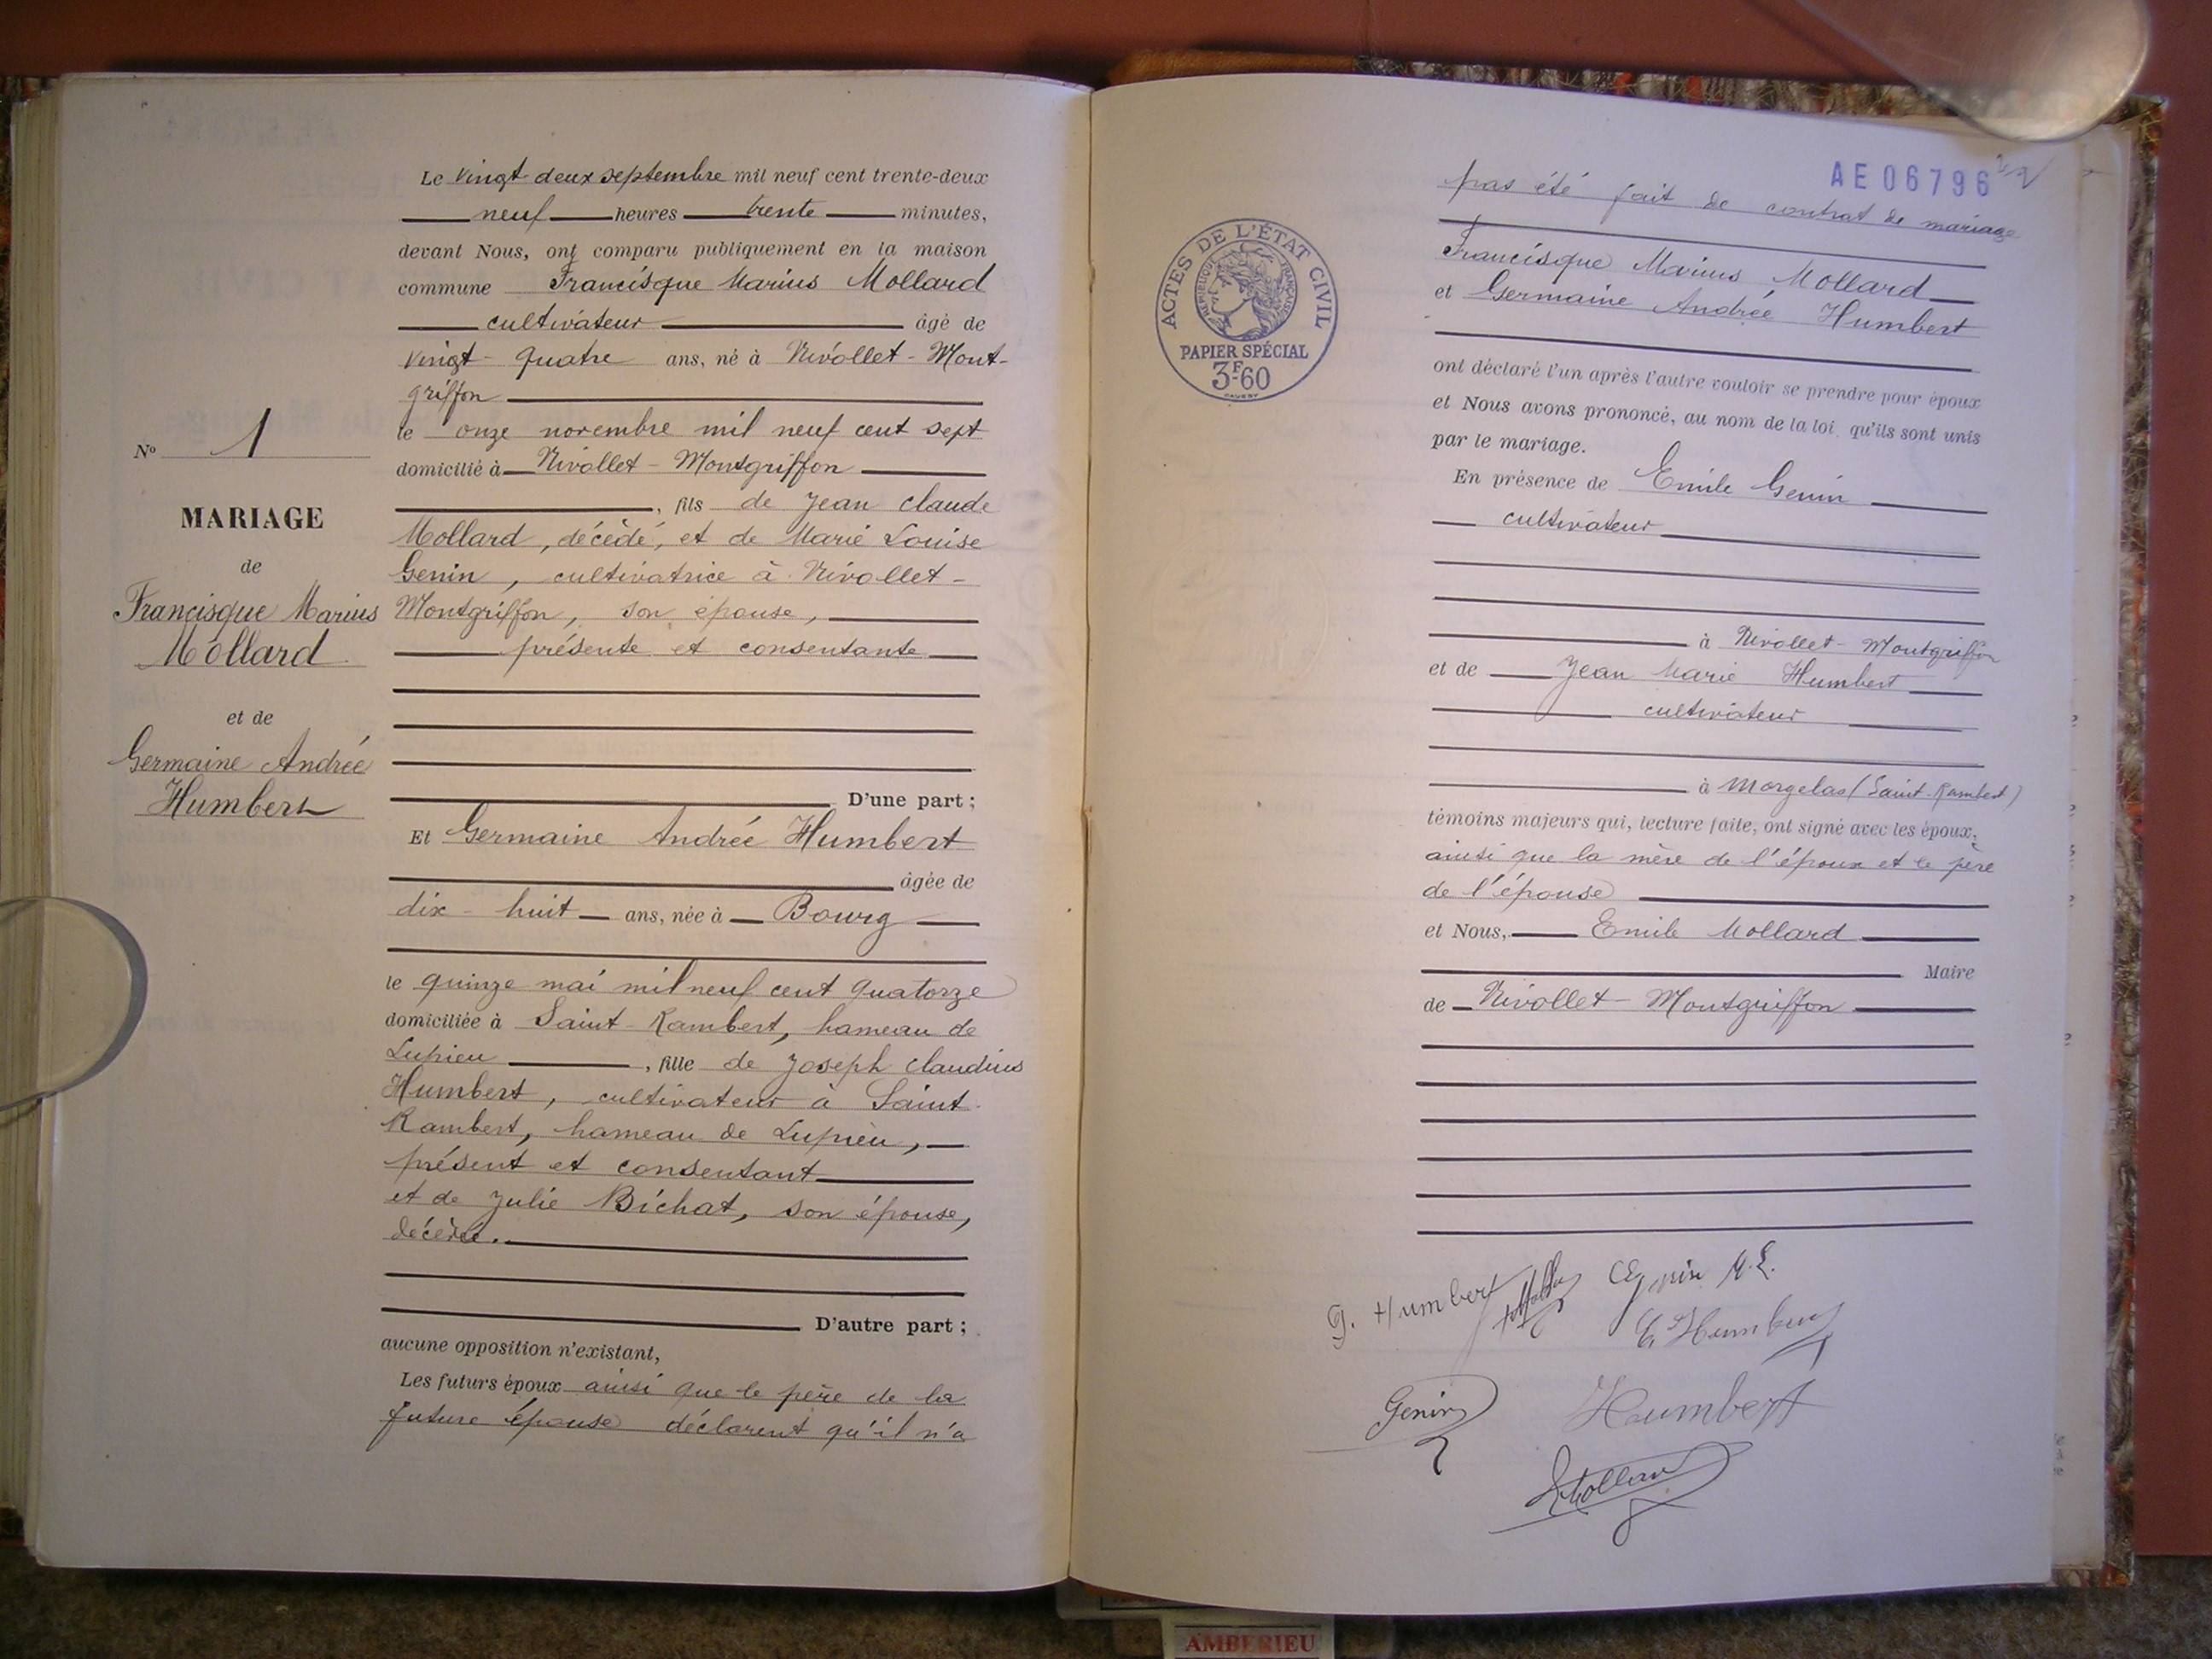 Le vingt-deux septembre mil neuf cent trente-deux
neuf heures trente minutes,
devant Nous, ont comparu publiquement en la maison
commune Francisque Marius Mollard
cultivateur âgé de
vingt-quatre ans, né à Nivollet-Mont-
griffon
le onze novembre mil neuf cent sept
domicilié à Nivollet-Montgriffon
, fils de Jean Claude
Mollard, décédé, et de Marie Louise
Genin, cultivatrice à Nivollet-
Montgriffon, son épouse,
présente et consentante
D'une part ;
Et Germaine Andrée Humbert
âgée de
dix-huit ans, née à Bourg
le quinze mai mil neuf cent quatorze
domiciliée à Saint-Rambert, hameau de
Lupieu, fille de Joseph Claudius
Humbert, cultivateur à Saint-
Rambert, hameau de Lupieu,
présent et consentant
et de Julie Bichat, son épouse,
décédée.
D'autre part ;
aucune opposition n'existant,
Les futurs époux ainsi que le père de la
future épouse déclarent qu'il n'a
No 1
MARIAGE
de
Francisque Marius
Mollard
et de
Germaine Andrée
Humbert
AE06796
pas été fait de contrat de mariage
Francisque Marius Mollard
et Germaine Andrée Humbert
ont déclaré l'un après l'autre vouloir se prendre pour époux
et Nous avons prononcé, au nom de la loi, qu'ils sont unis
par le mariage.
En présence de Emile Genin
cultivateur
à Nivollet-Montgriffon
et de Jean Marie Humbert
cultivateur
à Morgelas (Saint-Rambert)
témoins majeurs qui, lecture faite, ont signé avec les époux,
ainsi que la mère de l'époux et le père
de l'épouse
et Nous, Emile Mollard
Maire
de Nivollet-Montgriffon
ACTES DE L'ÉTAT CIVIL
RÉPUBLIQUE FRANÇAISE
PAPIER SPÉCIAL
3F60
G. Humbert
Humbert
Genin
Humbert
Mollard
AMBERIEU